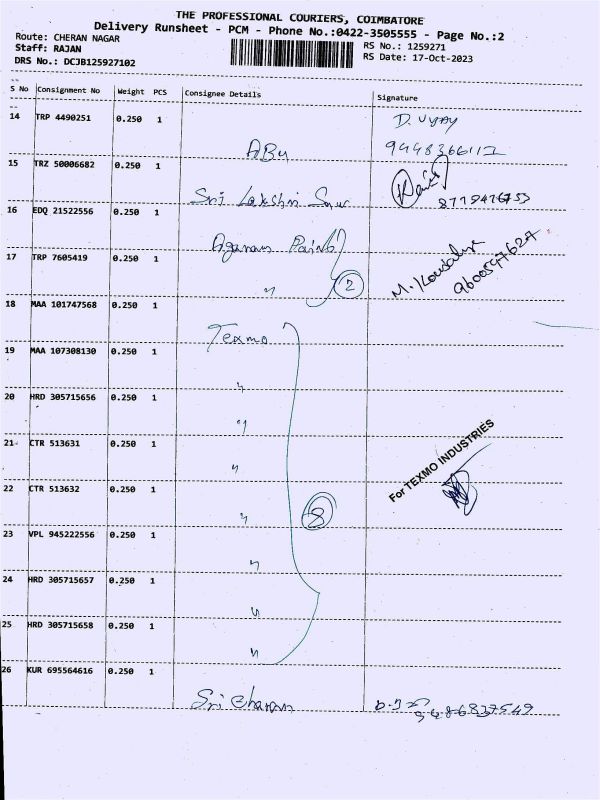 THE PROFESSIONAL COURIERS, COIMBATORE
Delivery Runsheet - PCM - Phone No.:0422-3505555 - Page No.:2
Route: CHERAN NAGAR
Staff: RAJAN
DRS No.: DCJB125927102
RS No.: 1259271
RS Date: 17-Oct-2023
S No Consignment No Weight PCS Consignee Details Signature
14 TRP 4490251 0.250 1
ABu
D. Vijay
15 TRZ 50006682 0.250 1
Sri Lakshmi
16 EDQ 21522556 0.250 1
17 TRP 7605419 0.250 1
" 2
M. Kousalya
9600597627
18 MAA 101747568 0.250 1
Texmo
19 MAA 107308130 0.250 1
"
20 HRD 305715656 0.250 1
"
21 CTR 513631 0.250 1
"
For TEXMO INDUSTRIES
22 CTR 513632 0.250 1
" 8
23 VPL 945222556 0.250 1
"
24 HRD 305715657 0.250 1
"
25 HRD 305715658 0.250 1
"
26 KUR 695564616 0.250 1
Sri Charan